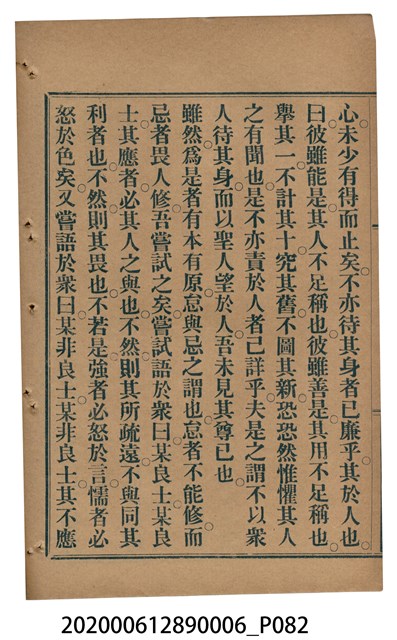 心未少有得而止矣不亦待其身者已廉乎其於人也
曰彼雖能是其人不足稱也彼雖善是其用不足稱也
舉其一不計其十究其舊不圖其新恐恐然惟懼其人
之有聞也是不亦責於人者已詳乎夫是之謂不以衆
人待其身而以聖人望於人吾未見其尊已也
雖然爲是者有本有原怠與忌之謂也怠者不能修而
忌者畏人修吾嘗試之矣嘗試語於衆曰某良士某良
士其應者必其人之與也不然則其所疏遠不與同其
利者也不然則其畏也不若是強者必怒於言懦者必
怒於色矣又嘗語於衆曰某非良士某非良士其不應
202000612890006_P082